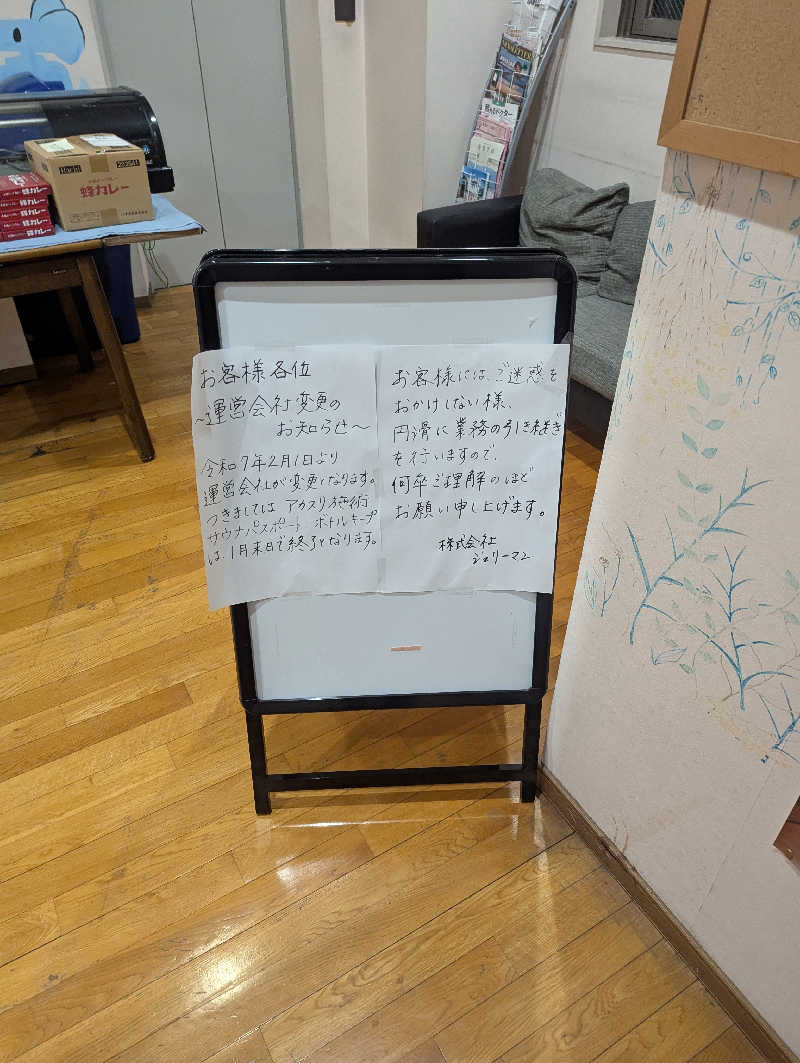 お客様各位
～運営会社変更の
お知らせ～
令和7年2月1日より
運営会社が変更となります。
つきましては アカスリ施術
サウナパスポート ボトルキープ
は、1月末日で終了となります。
お客様には、ご迷惑を
おかけしない様、
円滑に業務の引き継ぎ
を行いますので、
何卒ご理解のほど
お願い申し上げます。
株式会社
シェリーマン
蜂カレー